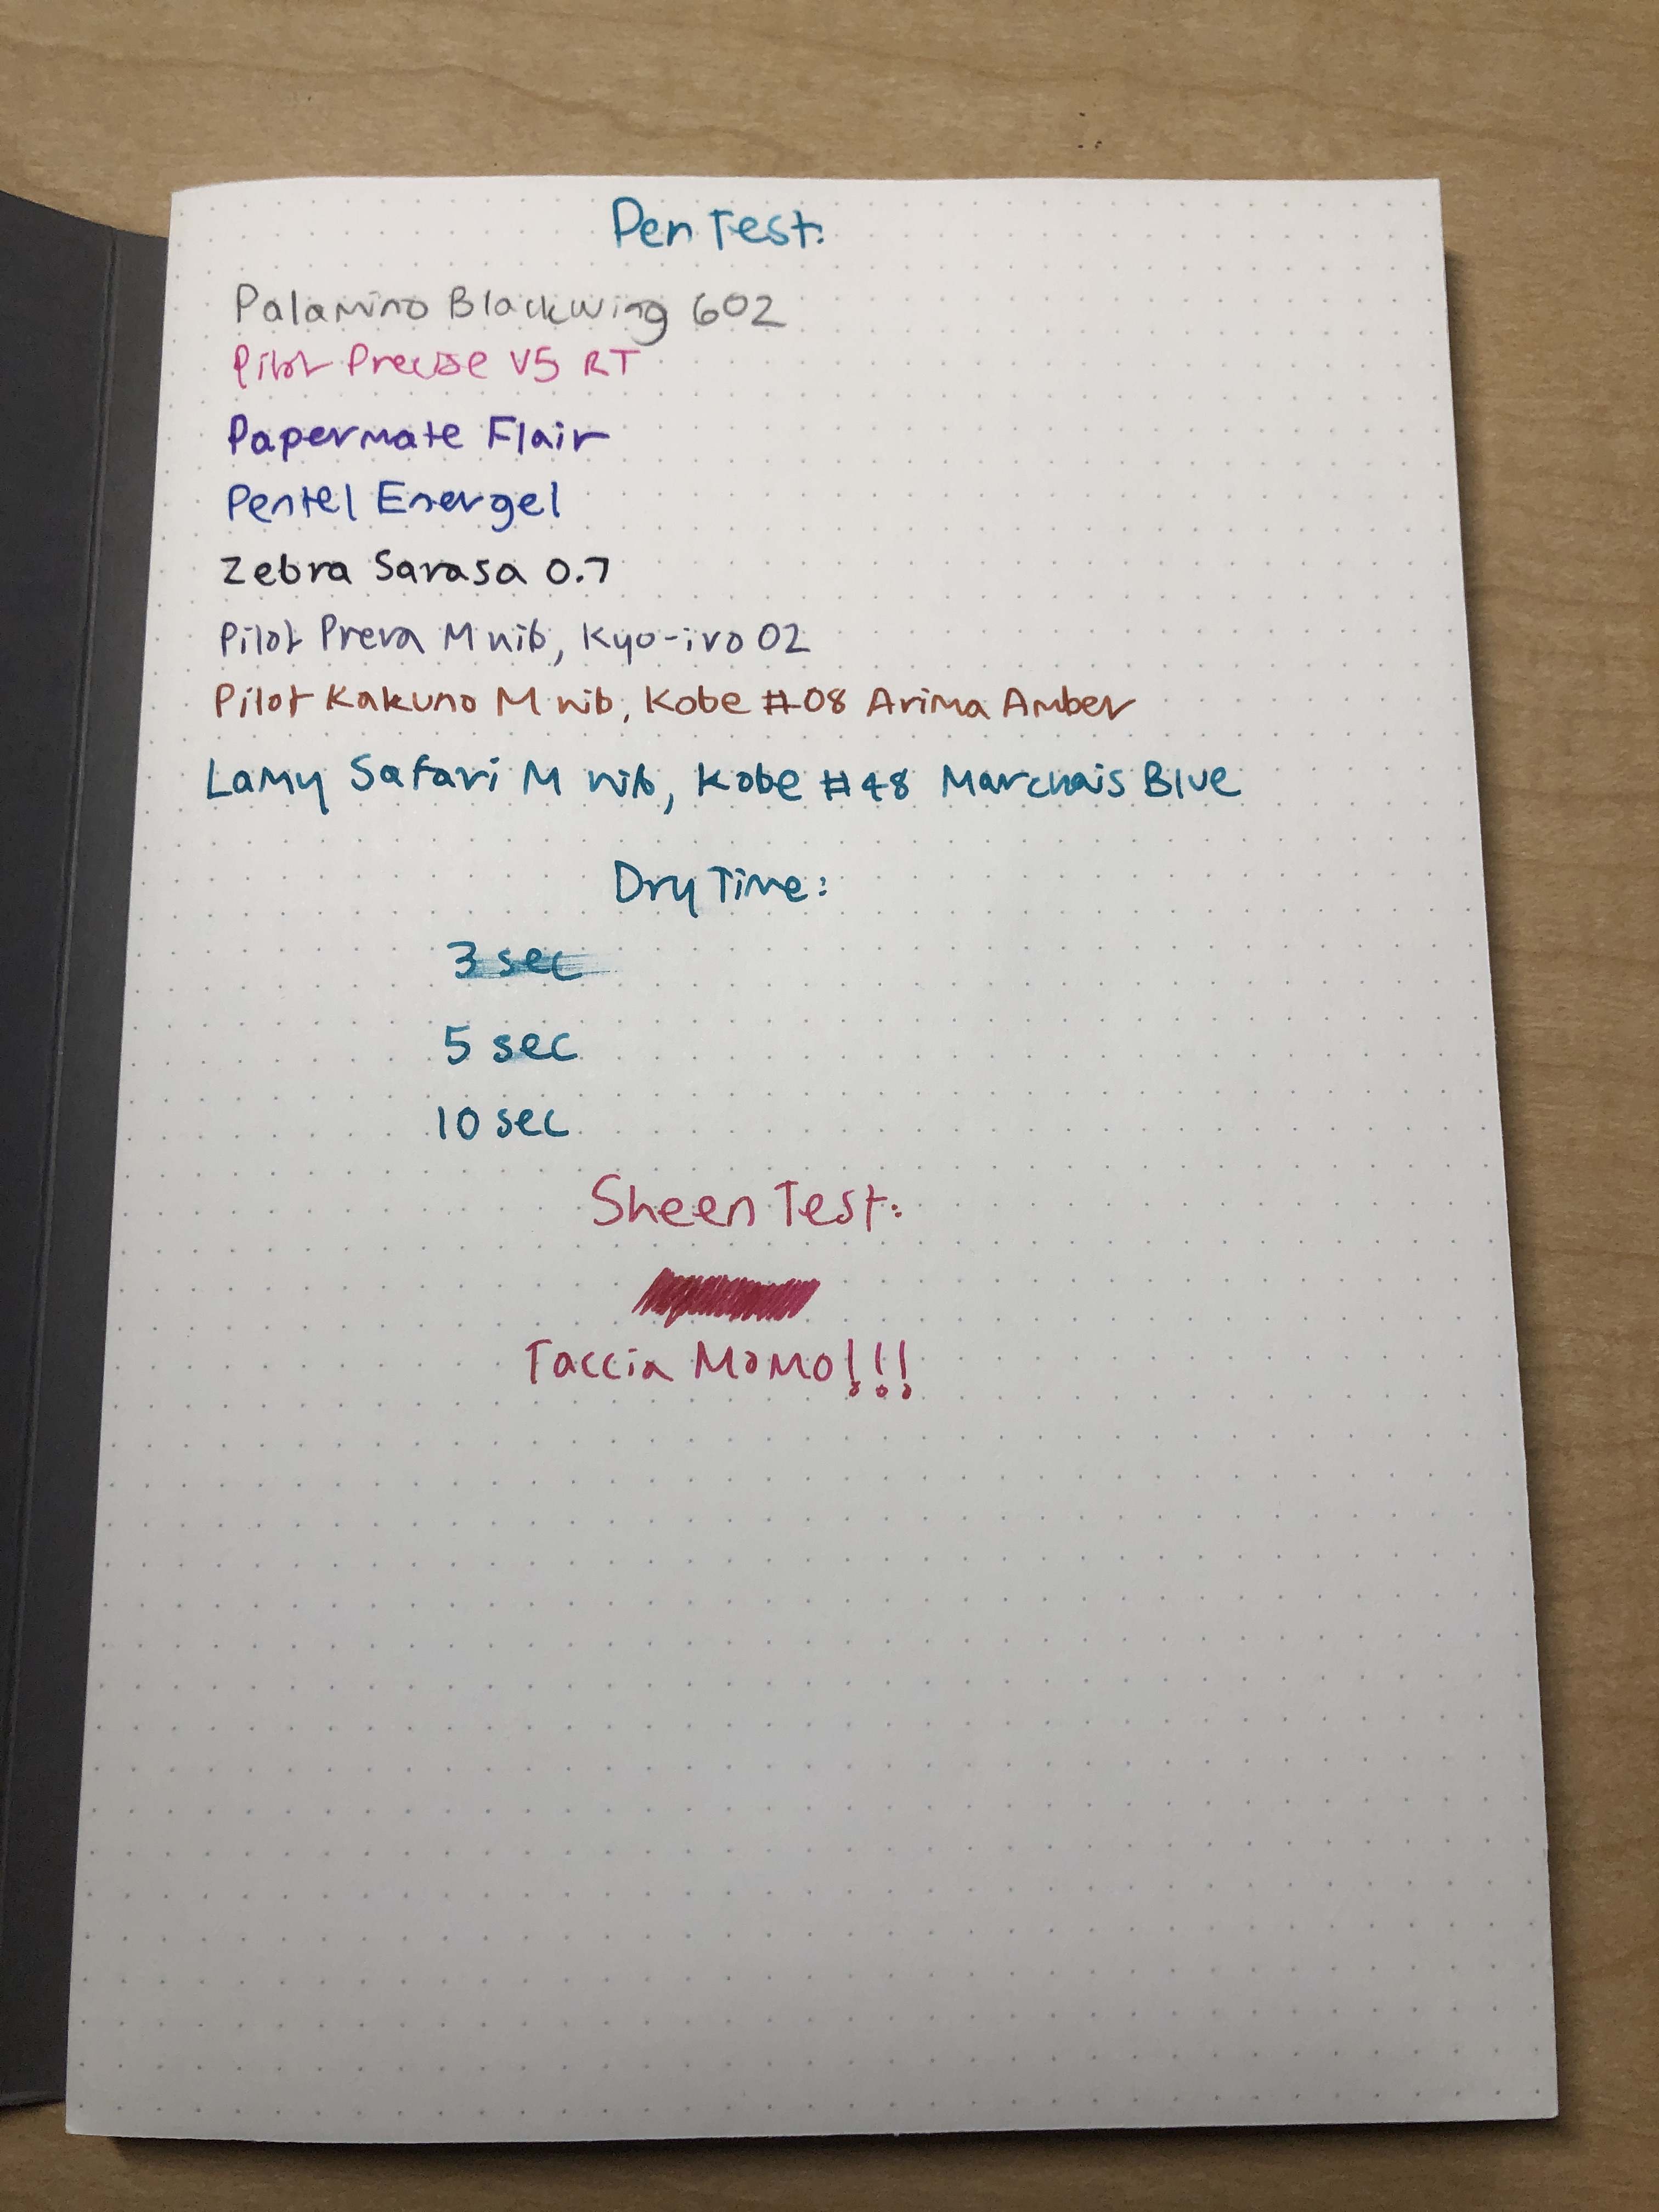 Pen Test:
Palamino Blackwing 602
Pilot Precise V5 RT
Papermate Flair
Pentel Energel
Zebra Sarasa 0.7
Pilot Prera M nib, Kyo-iro 02
Pilot Kakuno M nib, Kobe #08 Arima Amber
Lamy Safari M nib, Kobe #48 Marchais Blue
Dry Time:
3 sec
5 sec
10 sec
Sheen Test:
Taccia Momo!!!